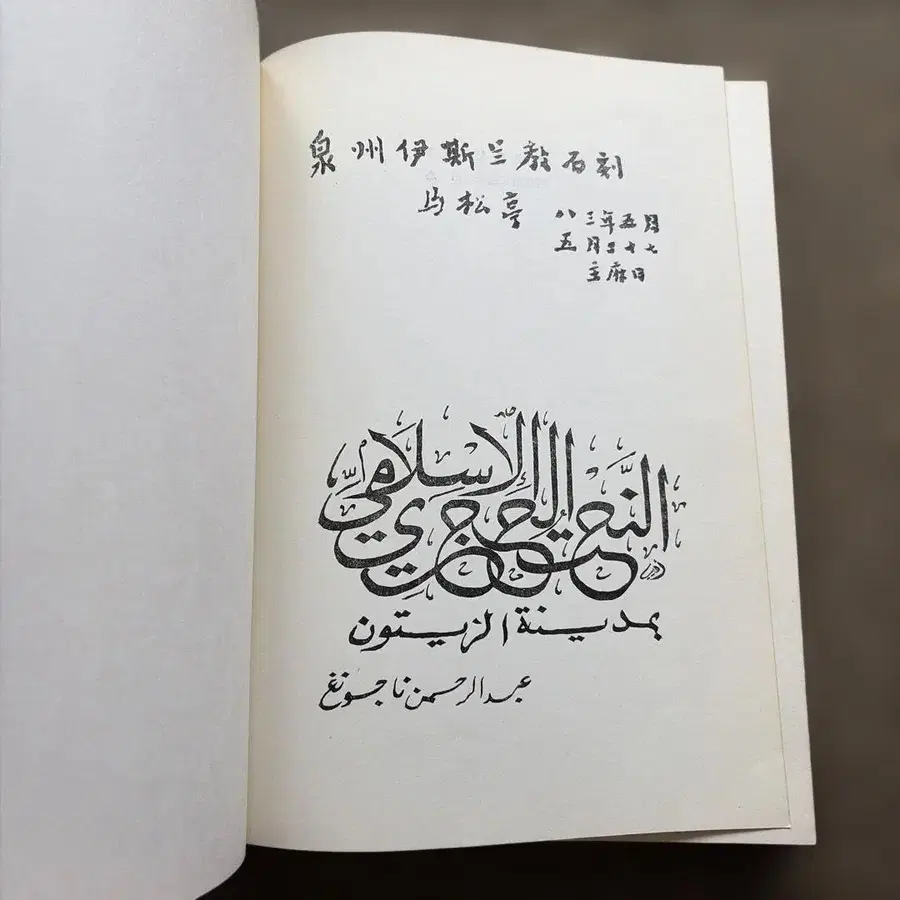 泉州伊斯兰教石刻
马松亭 八三年五月
五月二十七
主麻日
النحت الحجري الإسلامي
بمدينة الزيتون
عبد الرحمن ناجونغ